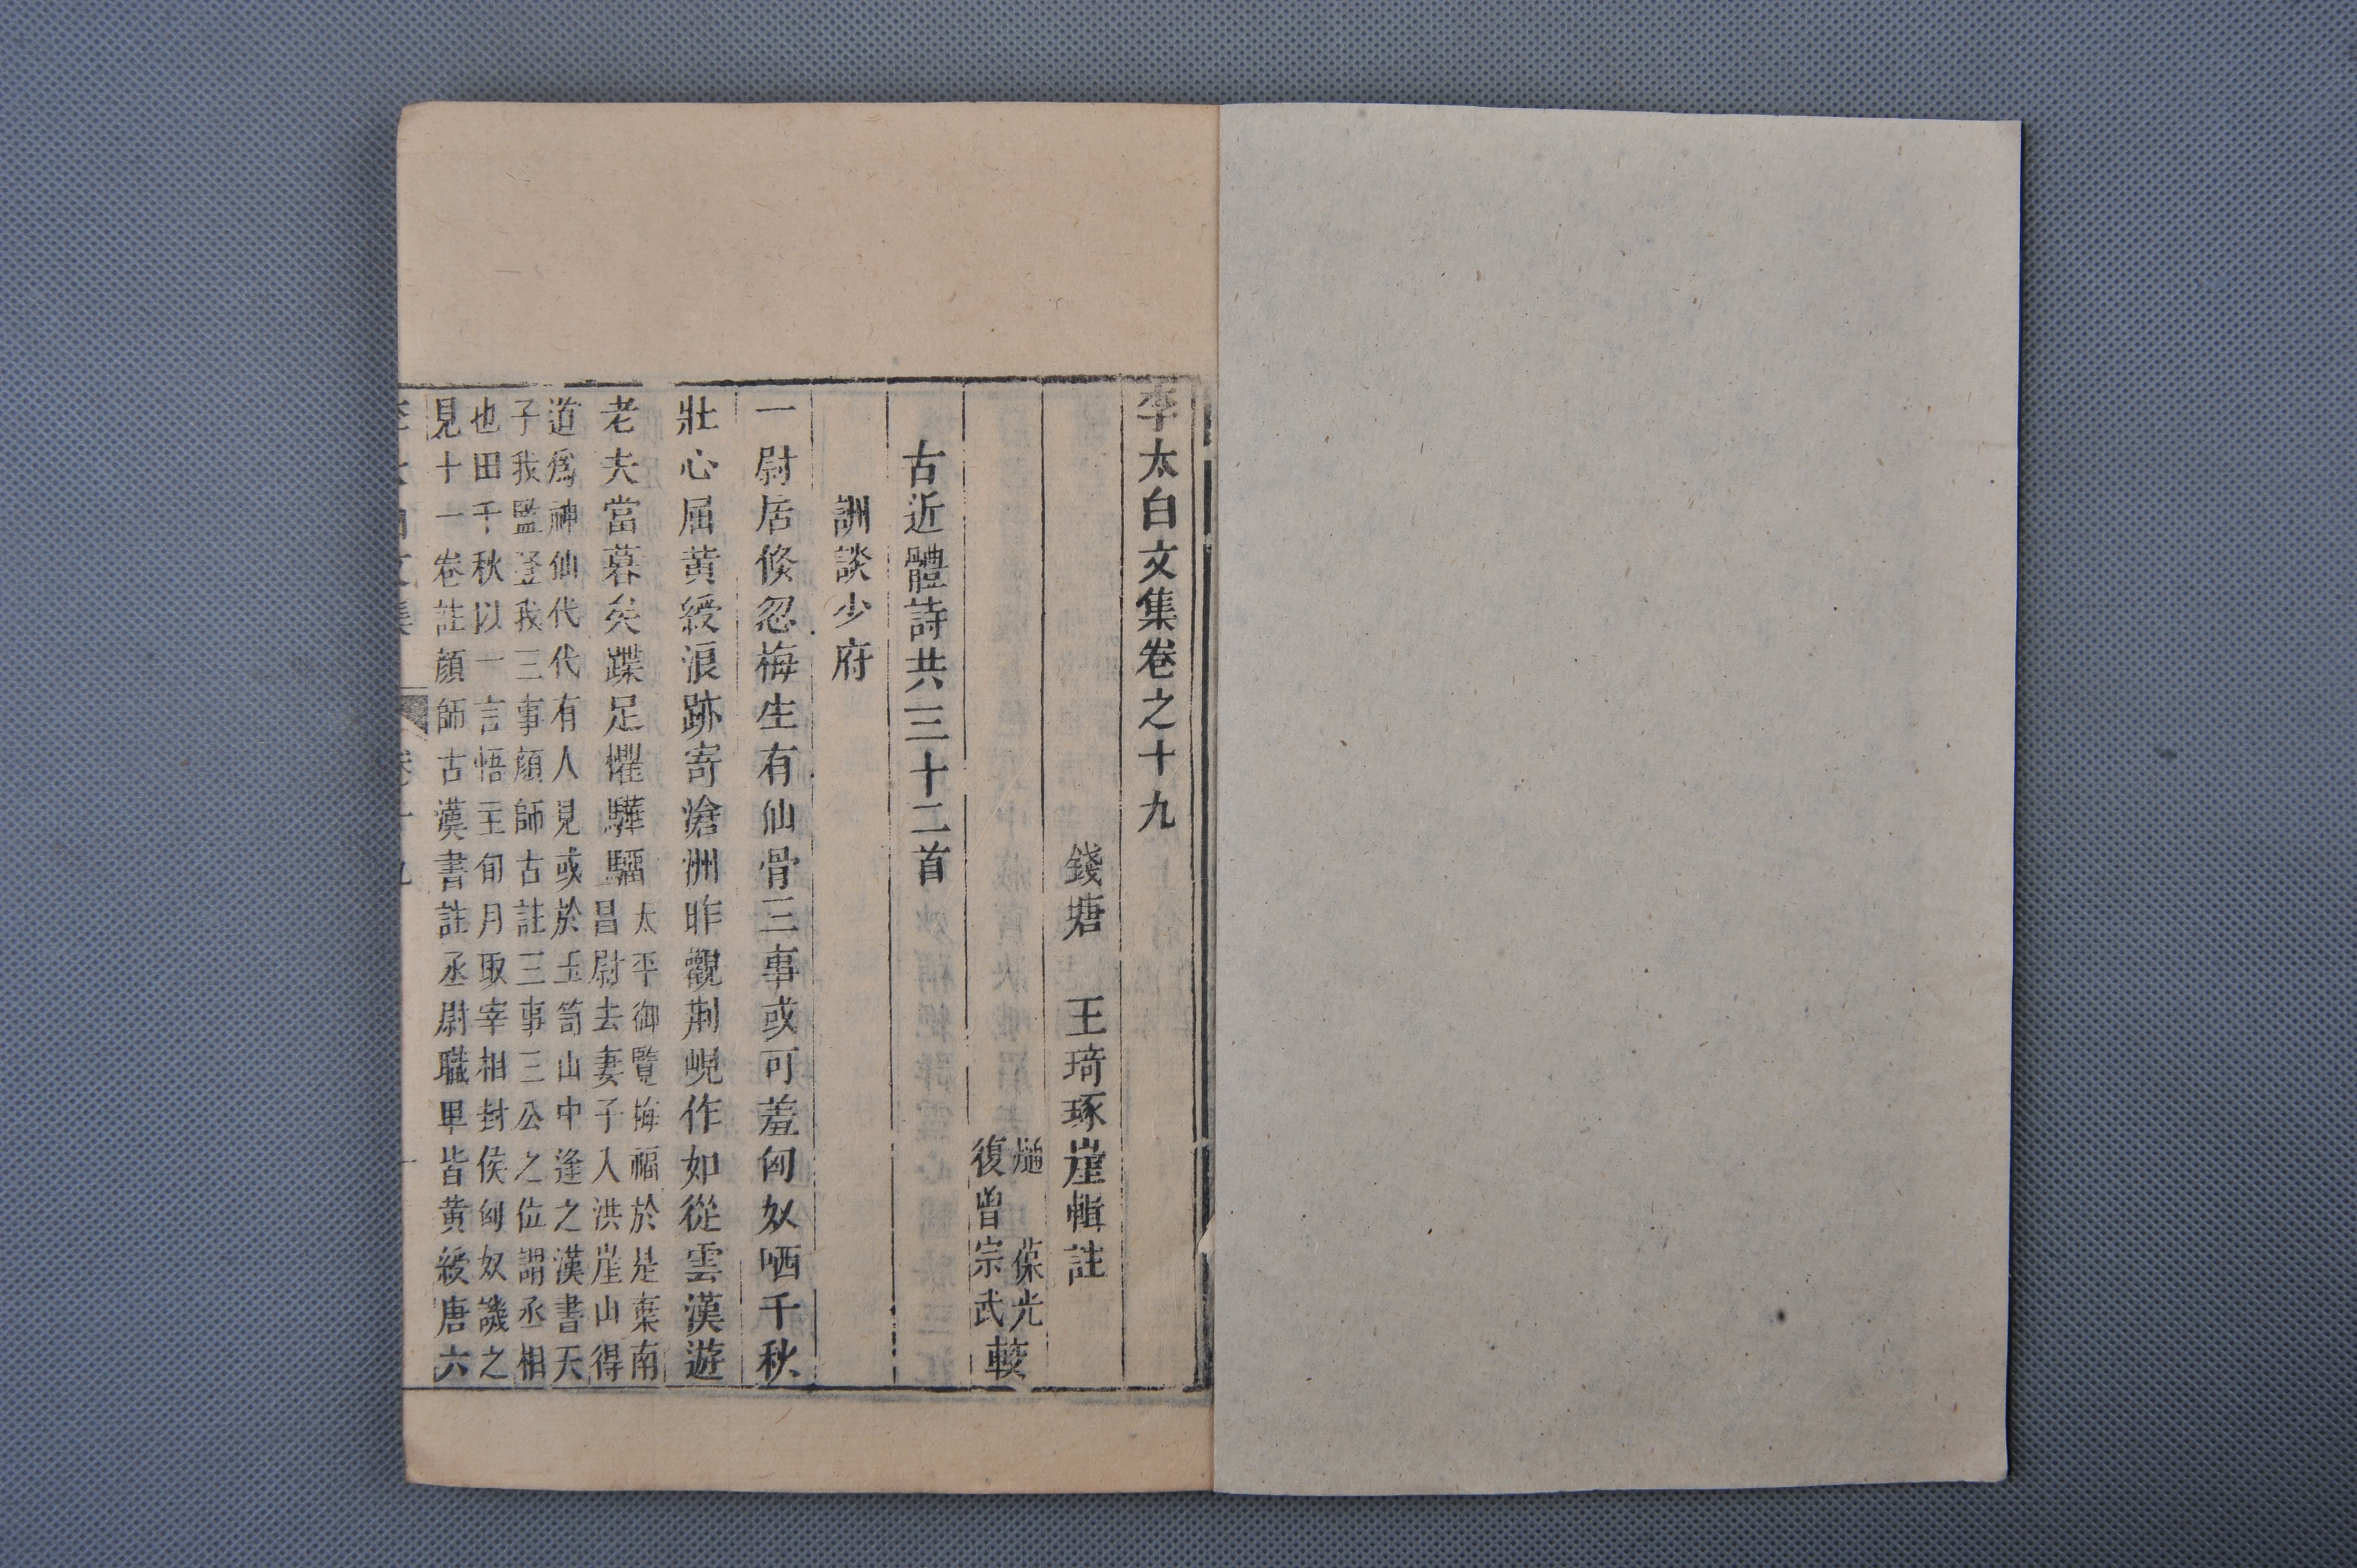 李太白文集卷之十九
錢塘 王琦琢崖輯註
縋 葆光
復曾宗武
較
古近體詩共三十二首
詶談少府
一尉居倐忽梅生有仙骨三事或可羞匈奴哂千秋
壯心屈黄綬浪跡寄滄洲昨觀荆峴作如從雲漢遊
老夫當暮矣蹀足懼驊騮
太平御覽梅福於是棄南
昌尉去妻子入洪崖山得
道爲神仙代代有人見或於玉笥山中逢之漢書天
子我監登我三事顔師古註三事三公之位謂丞相
也田千秋以一言悟主旬月取宰相封侯匈奴譏之
見十一卷註顔師古漢書註丞尉職卑皆黄綬唐六
李太白文集 卷十九 一